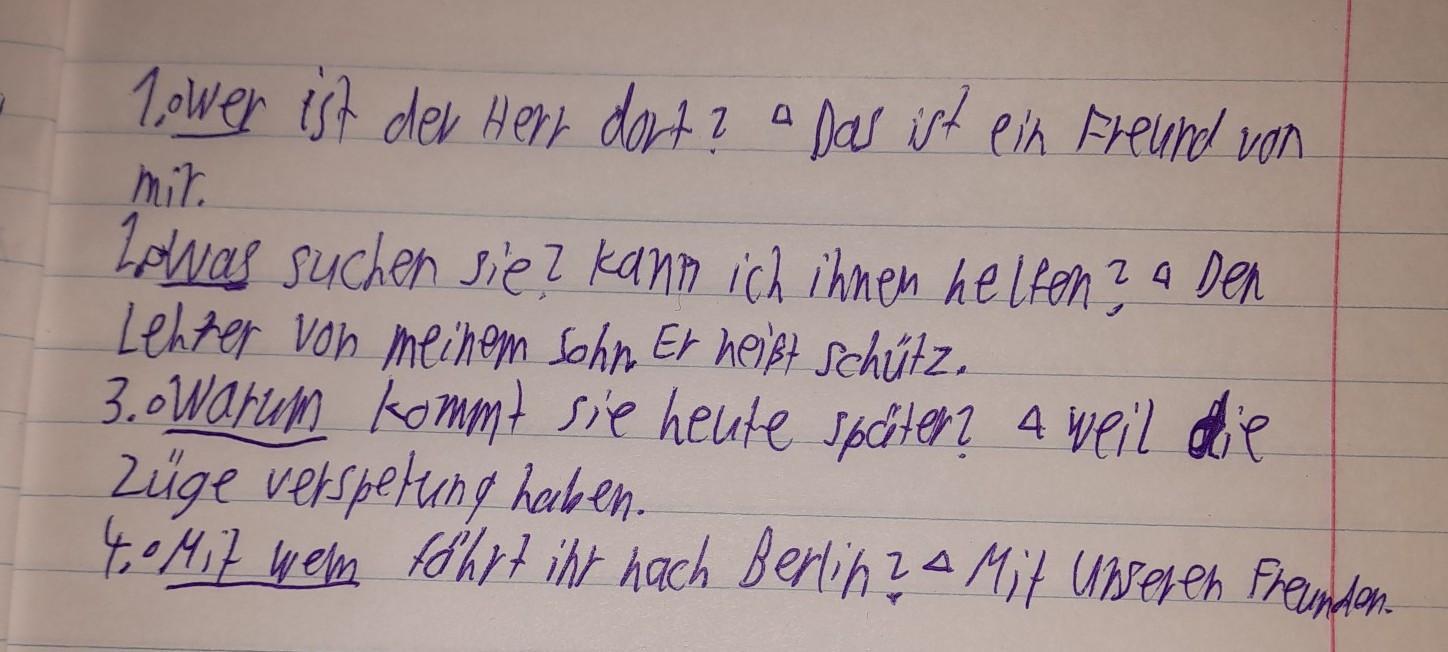 1.○wer ist der Herr dort? ▵Das ist ein Freund von
mir.
2.○was suchen sie? kann ich ihnen helfen? ▵Den
Lehrer von meinem sohn. Er heißt schütz.
3.○warum kommt sie heute später? ▵weil die
züge verspetung haben.
4.○Mit wem fährt ihr nach Berlin? ▵Mit Unseren Freunden.